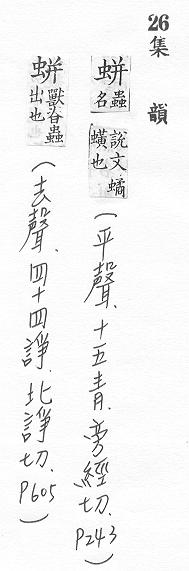 26集韻
蛢 蟲名 說文𧑐蟥也 (平聲、十五青、旁經切、P243)
蛢 獸 蟲出也 (去聲、四十四諍、北諍切、P605)